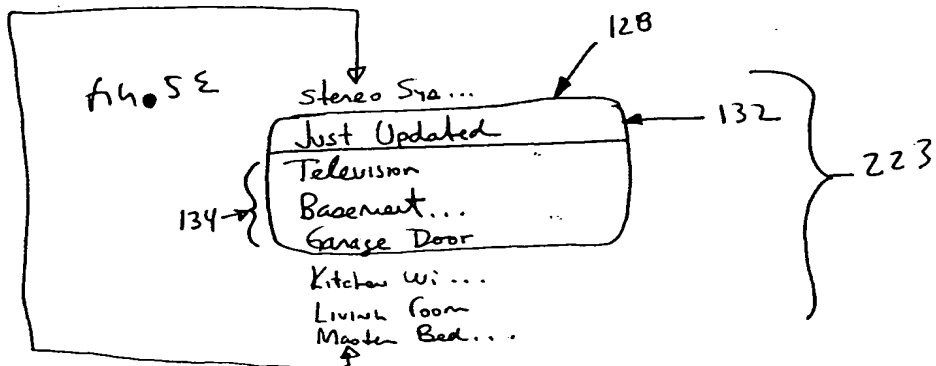 128
fig. 5E
Stereo Sys...
Just Updated
132
Television
223
Basement...
134
Garage Door
Kitchen Wi...
Living Room
Master Bed...